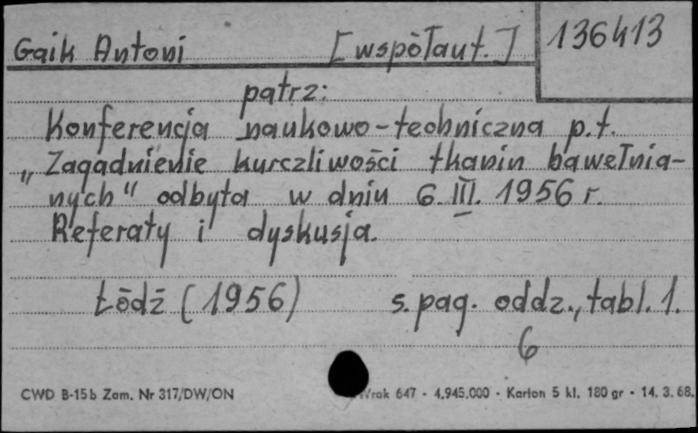 Gaik Antoni [współaut.] 136413
patrz:
Konferencja naukowo-techniczna p.t.
„Zagadnienie kurczliwości tkanin bawełnia-
nych" odbyta w dniu 6.III.1956 r.
Referaty i dyskusja.
Łódź (1956) s.pag. oddz., tabl. 1.
6
CWD B-15b Zam. Nr 317/DW/ON Wrak 647 - 4.945.000 - Karton 5 kl. 180 gr - 14. 3. 68.